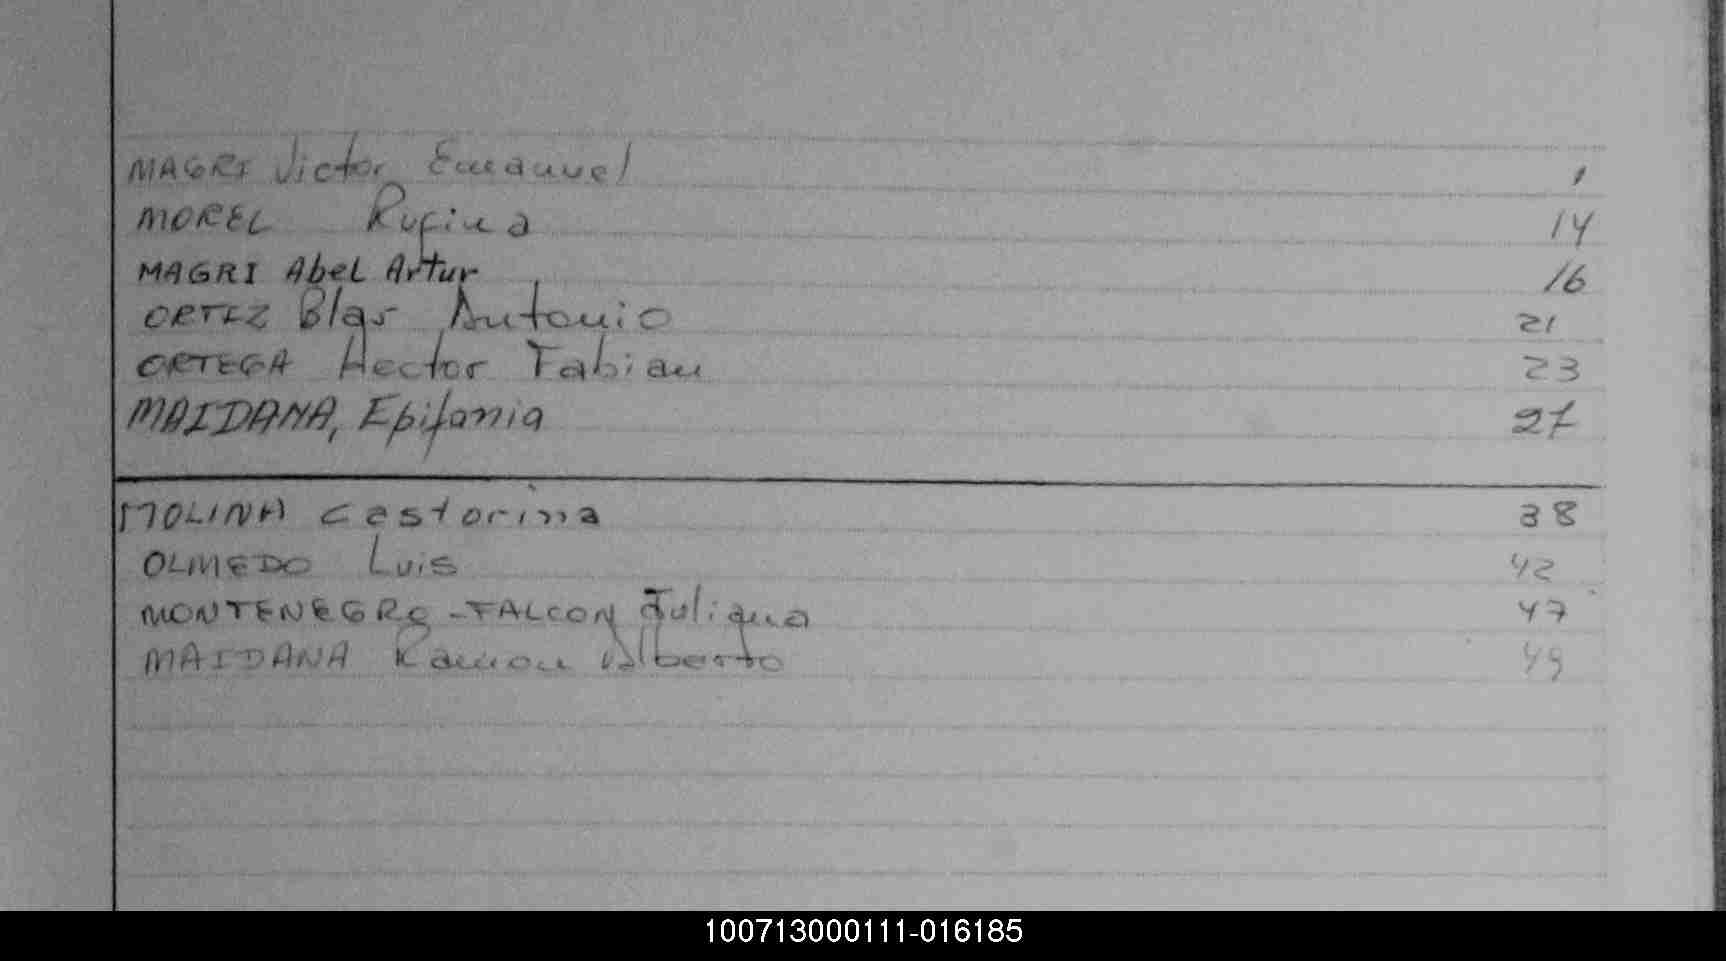 MAGRI Victor Emanuel 1
MOREL Rufina 14
MAGRI Abel Artur 16
ORTIZ Blas Antonio 21
ORTEGA Hector Fabian 23
MAIDANA, Epifania 27
MOLINA Castorina 38
OLMEDO Luis 42
MONTENEGRO-FALCON Juliana 47
MAIDANA Ramon Alberto 49
100713000111-016185